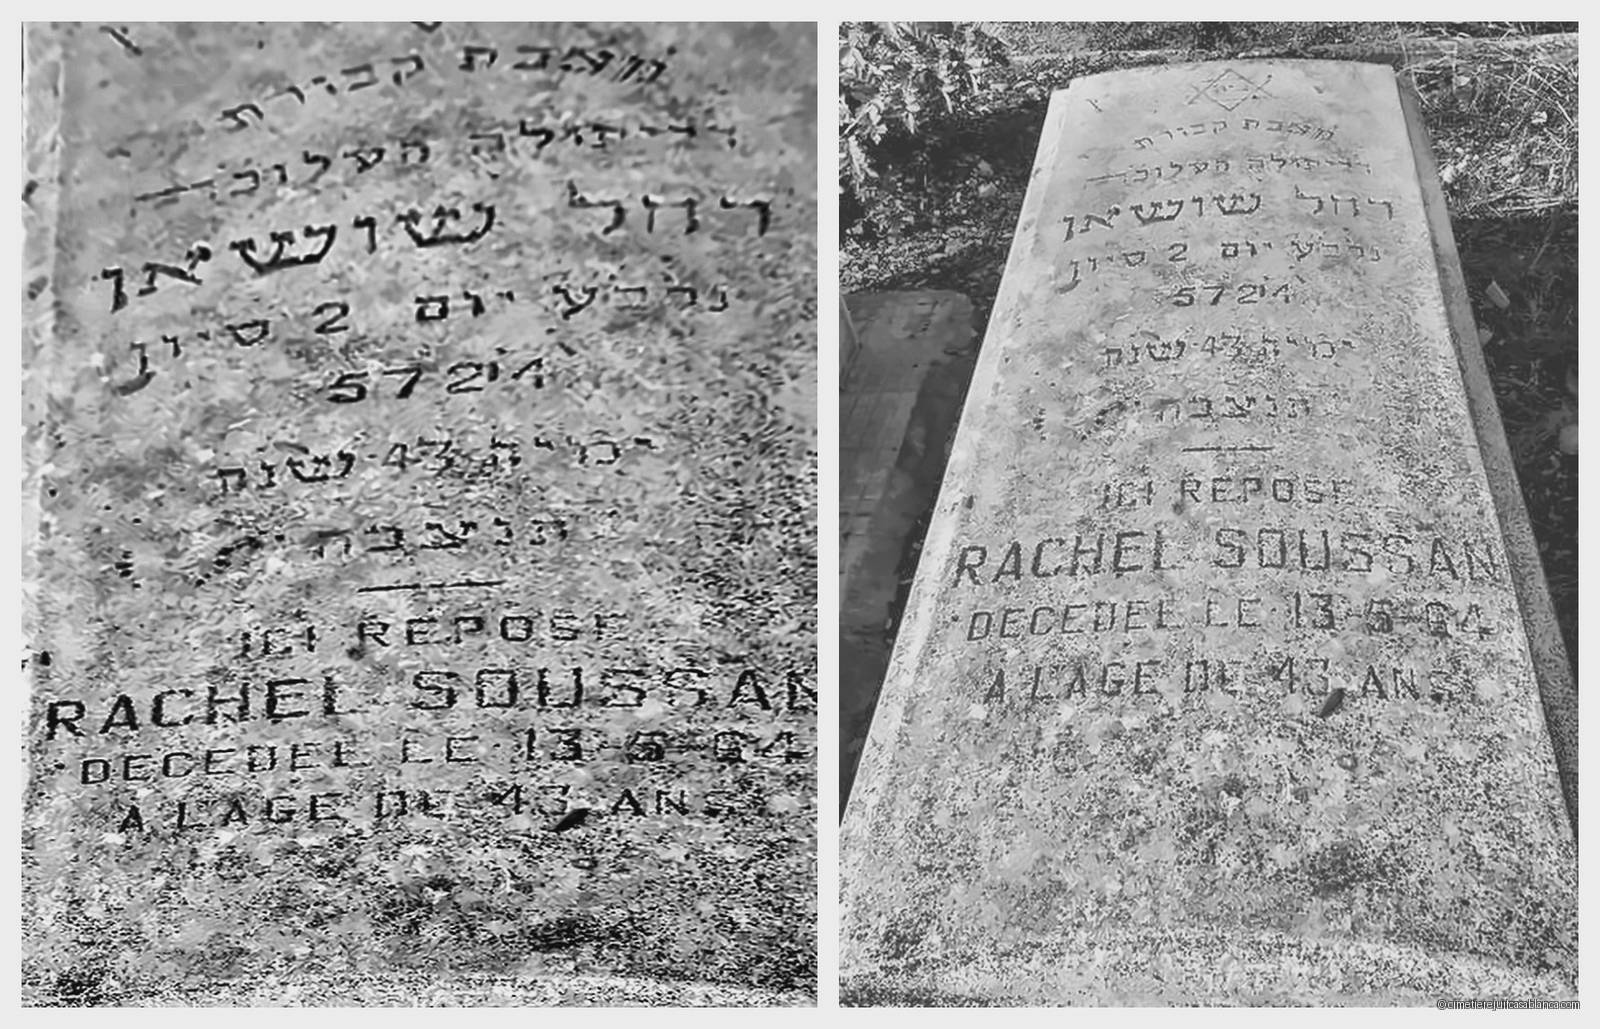 מצבת קבורת
העלובה
רחל שושאן
נלבע יום 2 סיון
5724
43 שנה
תנצבה
ICI REPOSE
RACHEL SOUSSAN
DECEDEE LE 13-5-64
A L'AGE DE 43 ANS
מצבת קבורת
העלובה
רחל שושאן
נלבע יום 2 סיון
5724
43 שנה
תנצבה
ICI REPOSE
RACHEL SOUSSAN
DECEDEE LE 13-5-64
A L'AGE DE 43 ANS
©cimetierejuifcasablanca.com